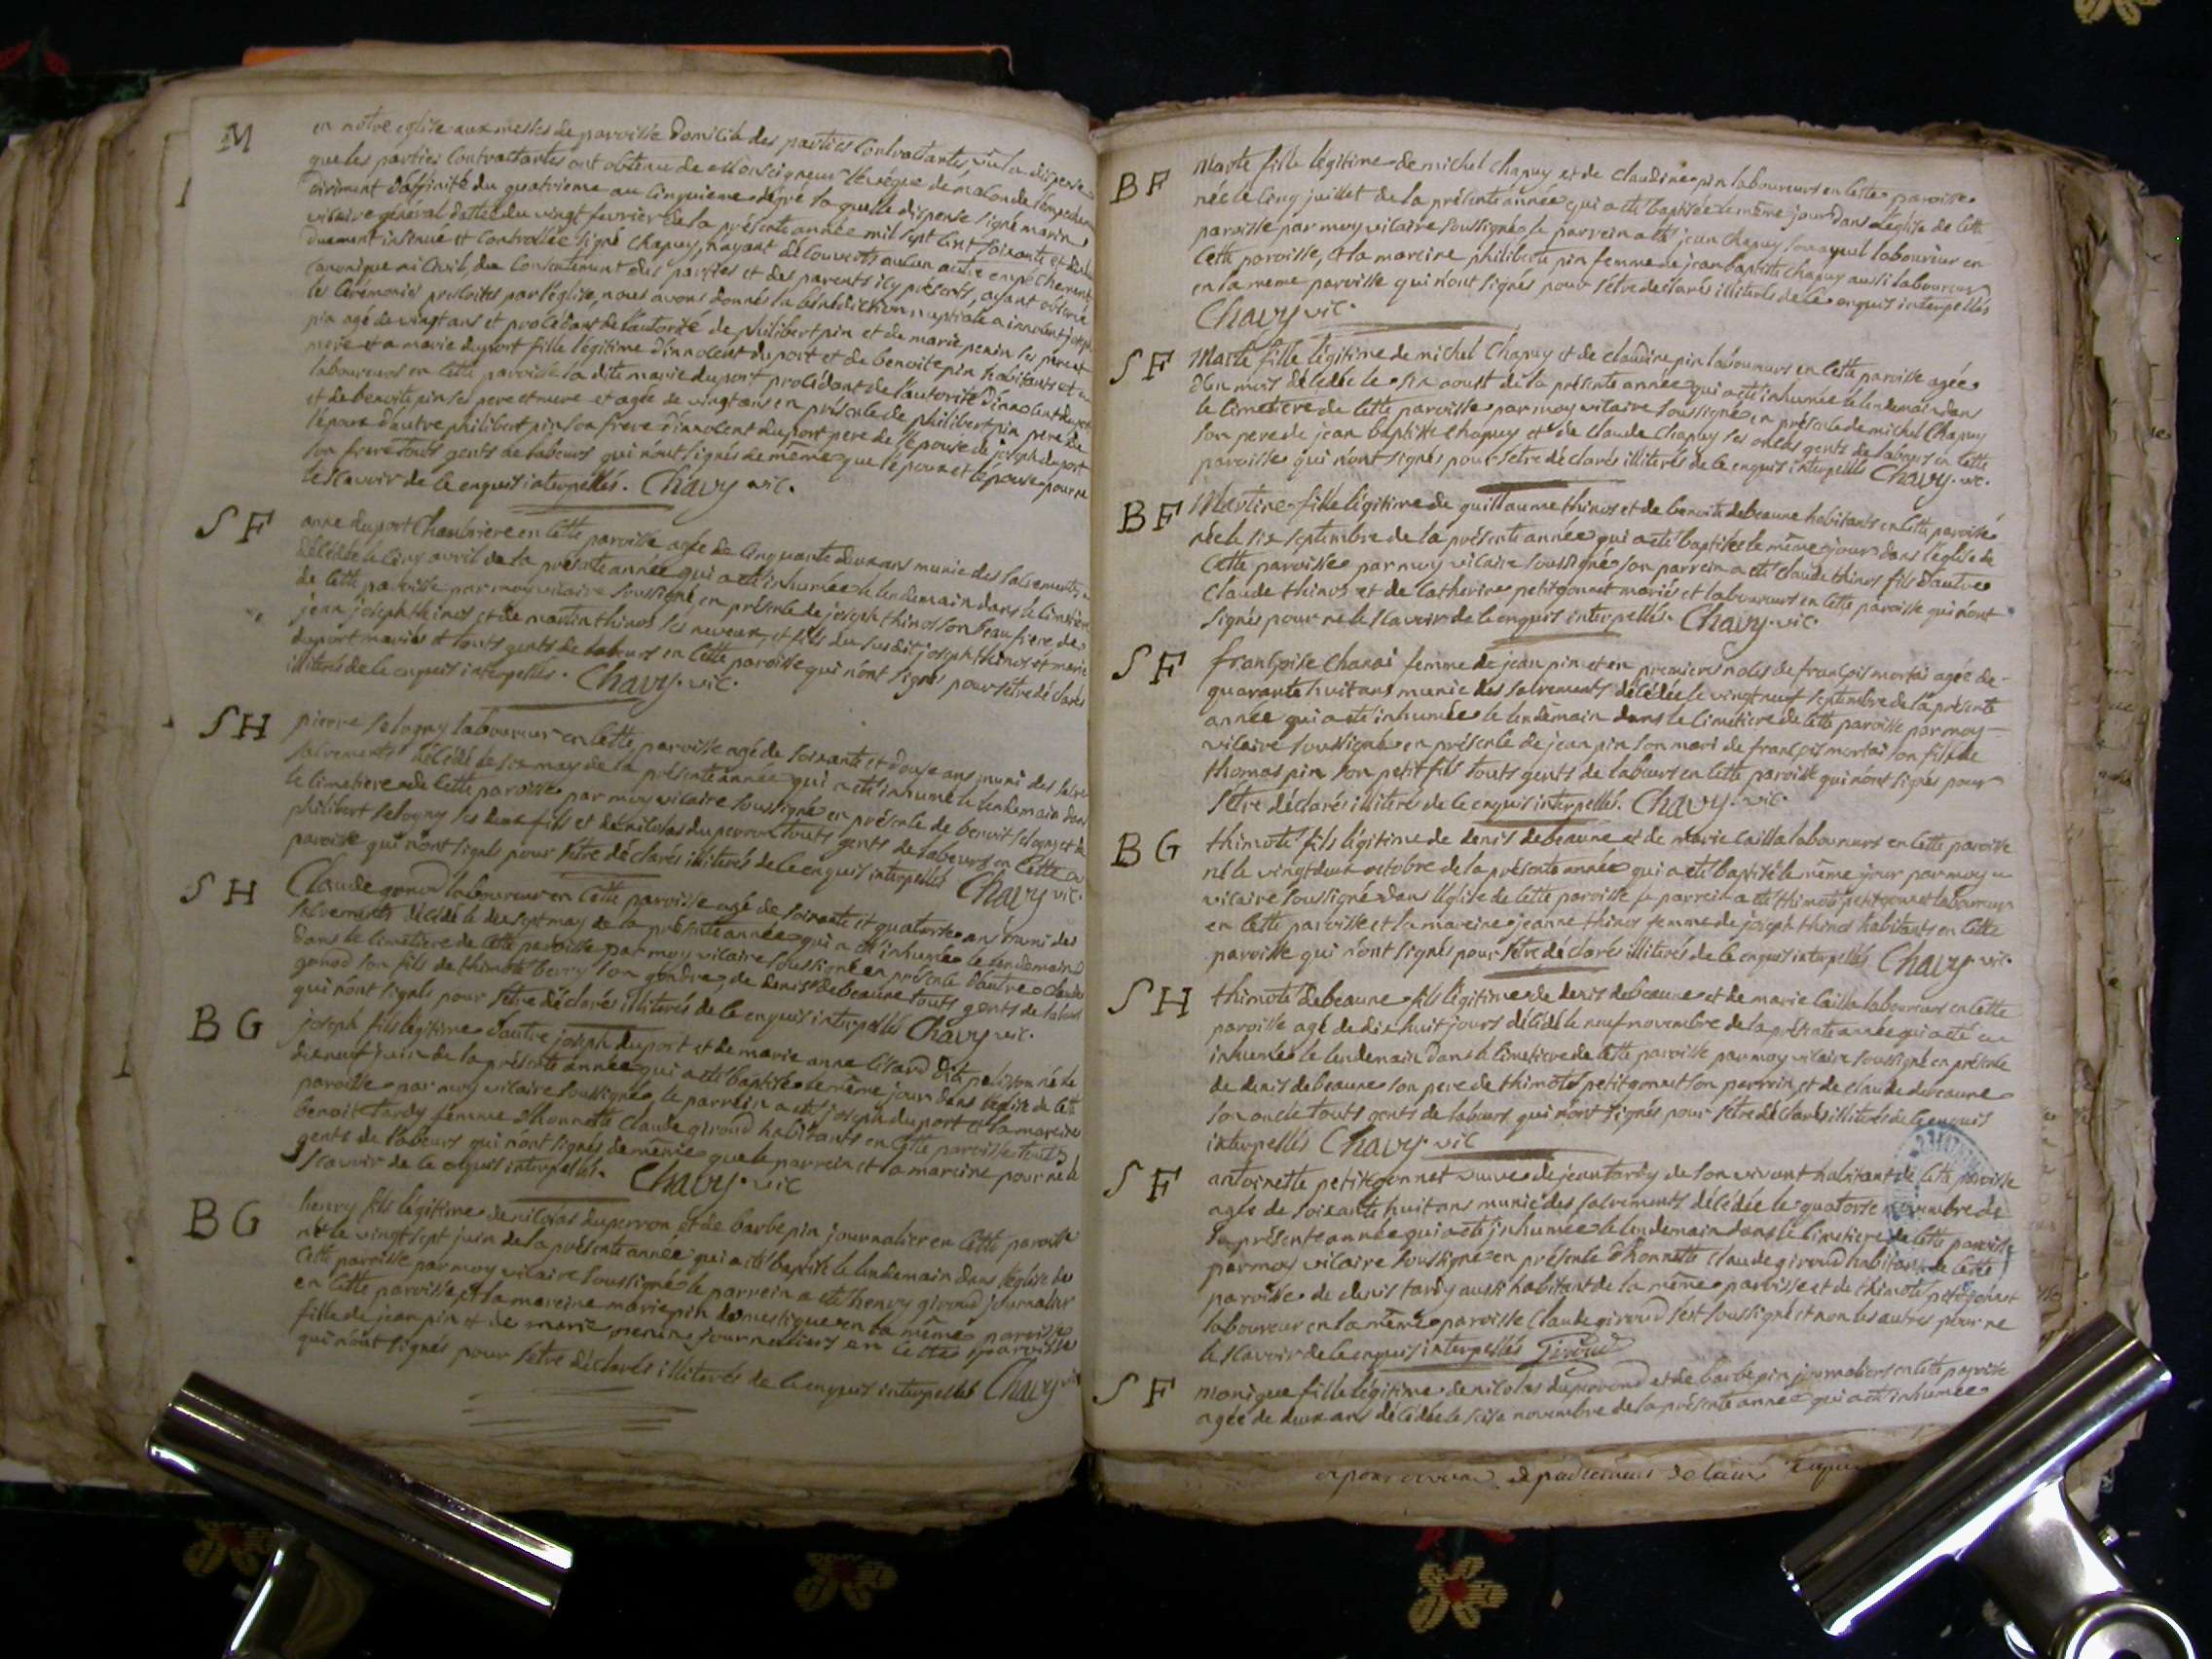 M
en nôtre eglise aux messes de paroisse domicile des parties contractantes vu la dispense
que les parties contractantes ont obtenu de Monseigneur l'evêque de macon de l'empechem
diriment d'affinité du quatrieme au cinquieme dégré la quelle dispense signé marin
vicaire général dattée du vingt fevrier de la présente année mil sept cent soixante et
duement insinué et controllée signé chapuy, n'ayant découverts aucun autre empêchement
canonique ni civil, du consentement des parties et des parents icy présents, ayant observé
les cérémonies prescrites par l'église, nous avons donnés la bénédiction nuptiale a innocent joseph
pin agé de vingt ans et procédant de l'autorité de philibert pin et de marie penin ses pere et
mere et a marie duport fille légitime d'innocent duport et de benoite pin habitants et
laboureurs en cette paroisse la dite marie duport procédant de l'autorité d'innocent duport
et de benoite pin ses pere et mere et agée de vingt ans en présence de philibert pin pere de
l'epoux d'autre philibert pin son frere d'innocent duport pere de l'épouse de joseph duport
son frere touts gents de labeurs qui n'ont signés de même que l'époux et l'épouse pour ne
le scavoir de ce enquis interpellés. Chavy vic.
S F
anne duport chambriere en cette paroisse agée de cinquante deux ans munie des sacrements
décédée le cinq avril de la présente année qui a eté inhumée le lendemain dans le cimetiere
de cette paroisse par moy vicaire soussigné, en présence de joseph thinos son beau frere, de
jean joseph thinos et de martin thinos ses neveux, et fils du susdit joseph thinos et marie
duport mariés et touts gents de labeurs en cette paroisse qui n'ont signés pour s'être déclarés
illiterés de ce enquis interpellés. Chavy. vic.
S H
pierre selogny laboureur en cette paroisse agé de soixante et douse ans muni des sacre
sacrements décédé le six may de la présente année qui a eté inhumé le lendemain dans
le cimetiere de cette paroisse par moy vicaire soussigné en présence de benoit selogny et de
philibert selogny ses deux fils et de nicolas duperron touts gents de labeurs en cette
paroisse qui n'ont signés pour s'être déclarés illiterés de ce enquis interpellés Chavy vic.
S H
Claude gonod laboureur en cette paroisse agé de soixante et quatorse ans muni des
sacrements décédé le dix sept may de la présente année qui a eté inhumé le lendemain
dans le cimetiere de cette paroisse par moy vicaire soussigné en présence d'autre claude
gonod son fils de thimoté berry son gendre, de denis debeaune touts gents de labeurs
qui n'ont signés pour s'être déclarés illiterés de ce enquis interpellés Chavy vic.
B G
joseph fils légitime d'autre joseph duport et de marie anne lisard dit né le
dixneuf juin de la présente année qui a eté baptisé le même jour dans l'eglise de cette
paroisse par moy vicaire soussigné, le parrein a eté joseph duport et la mareine
benoit tardy femme d'honnette claude giroud habitants en cette paroisse touts
gents de labeurs qui n'ont signés de même que le parrein et la mareine pour ne le
scavoir de ce enquis interpellés. Chavy. vic
B G
henry fils légitime de nicolas duperron et de barbe pin journalier en cette paroisse
né le vingt sept juin de la présente année qui a eté baptisé le lendemain dans l'église de
cette paroisse par moy vicaire soussigné le parrein a eté henry giroud journalier
en cette paroisse, et la mareine marie pin domestique en la même paroisse
fille de jean pin et de marie penin journaliers en cette paroisse
qui n'ont signés pour s'être déclarés illiterés de ce enquis interpellés Chavy vic
B F
Marte fille légitime de michel chapuy et de claudine pin laboureurs en cette paroisse
née le cinq juillet de la présente année qui a eté baptisée le même jour dans l'église de cette
paroisse par moy vicaire soussigné le parrein a eté jean chapuy son ayeul laboureur en
cette paroisse, et la mareine philiberte pin femme de jean baptiste chapuy aussi laboureur
en la même paroisse qui n'ont signés pour s'être déclarés illiterés de ce enquis interpellés
Chavy vic.
S F
Marte fille légitime de michel Chapuy et de claudine pin laboureurs en cette paroisse agée
d'un mois décédée le six aoust de la présente année qui a eté inhumée le lendemain dans
le cimetiere de cette paroisse par moy vicaire soussigné en présence de michel Chapuy
son pere de jean baptiste chapuy et de claude chapuy ses oncles gents de labeurs en cette
paroisse qui n'ont signés pour s'être déclarés illiterés de ce enquis interpellés Chavy. vic.
B F
Martine fille légitime de guillaume thinos et de benoite debeaune habitants en cette paroisse
née le six septembre de la présente année qui a eté baptisée le même jour dans l'église de
cette paroisse par moy vicaire soussigné son parrein a eté claude thinos fils d'autre
claude thinos et de catherine petitgonnet mariés et laboureurs en cette paroisse qui n'ont
signés pour ne le scavoir de ce enquis interpellés. Chavy. vic.
S F
françoise charai femme de jean pin et en premieres noces de françois mortai agée de
quarante huit ans munie des sacrements décédée le vingt neuf septembre de la présente
année qui a eté inhumée le lendemain dans le cimetiere de cette paroisse par moy
vicaire soussigné en présence de jean pin son mari de françois mortai son fils de
thomas pin son petit fils touts gents de labeurs en cette paroisse qui n'ont signés pour
s'être déclarés illiterés de ce enquis interpellés. Chavy. vic.
B G
thimoté fils légitime de denis debeaune et de marie cailla laboureurs en cette paroisse
né le vingt deux octobre de la présente année qui a eté baptisé le même jour par moy
vicaire soussigné dans l'église de cette paroisse le parrein a eté thimoté petitgonnet laboureur
en cette paroisse et la mareine jeanne thinos femme de joseph thinos habitants en cette
paroisse qui n'ont signés pour s'être déclarés illiterés de ce enquis interpellés Chavy vic.
S H
thimoté debeaune fils légitime de denis debeaune et de marie cailla laboureurs en cette
paroisse agé de dix huit jours décédé le neuf novembre de la présente année qui a eté
inhumé le lendemain dans le cimetiere de cette paroisse par moy vicaire soussigné en présence
de denis debeaune son pere de thimoté petitgonnet son parrein, et de claude debeaune
son oncle touts gents de labeurs qui n'ont signés pour s'être déclarés illiterés de ce enquis
interpellés Chavy. vic
S F
antoinette petitgonnet veuve de jean tardy de son vivant habitant de cette paroisse
agée de soixante huit ans munie des sacrements décédée le quatorse novembre de
la présente année qui a eté inhumée le lendemain dans le cimetiere de cette paroisse
par moy vicaire soussigné en présence d'honnette claude giroud habitant de cette
paroisse de denis tardy aussi habitant de la même paroisse et de thimoté petitgonnet
laboureur en la même paroisse Claude giroud s'est soussigné et non les autres pour ne
le scavoir de ce enquis interpellés Giroud
S F
monique fille légitime de nicolas duperond et de barbe pin journaliers en cette paroisse
agée de deux ans décédée le seise novembre de la présente année qui a eté inhumée